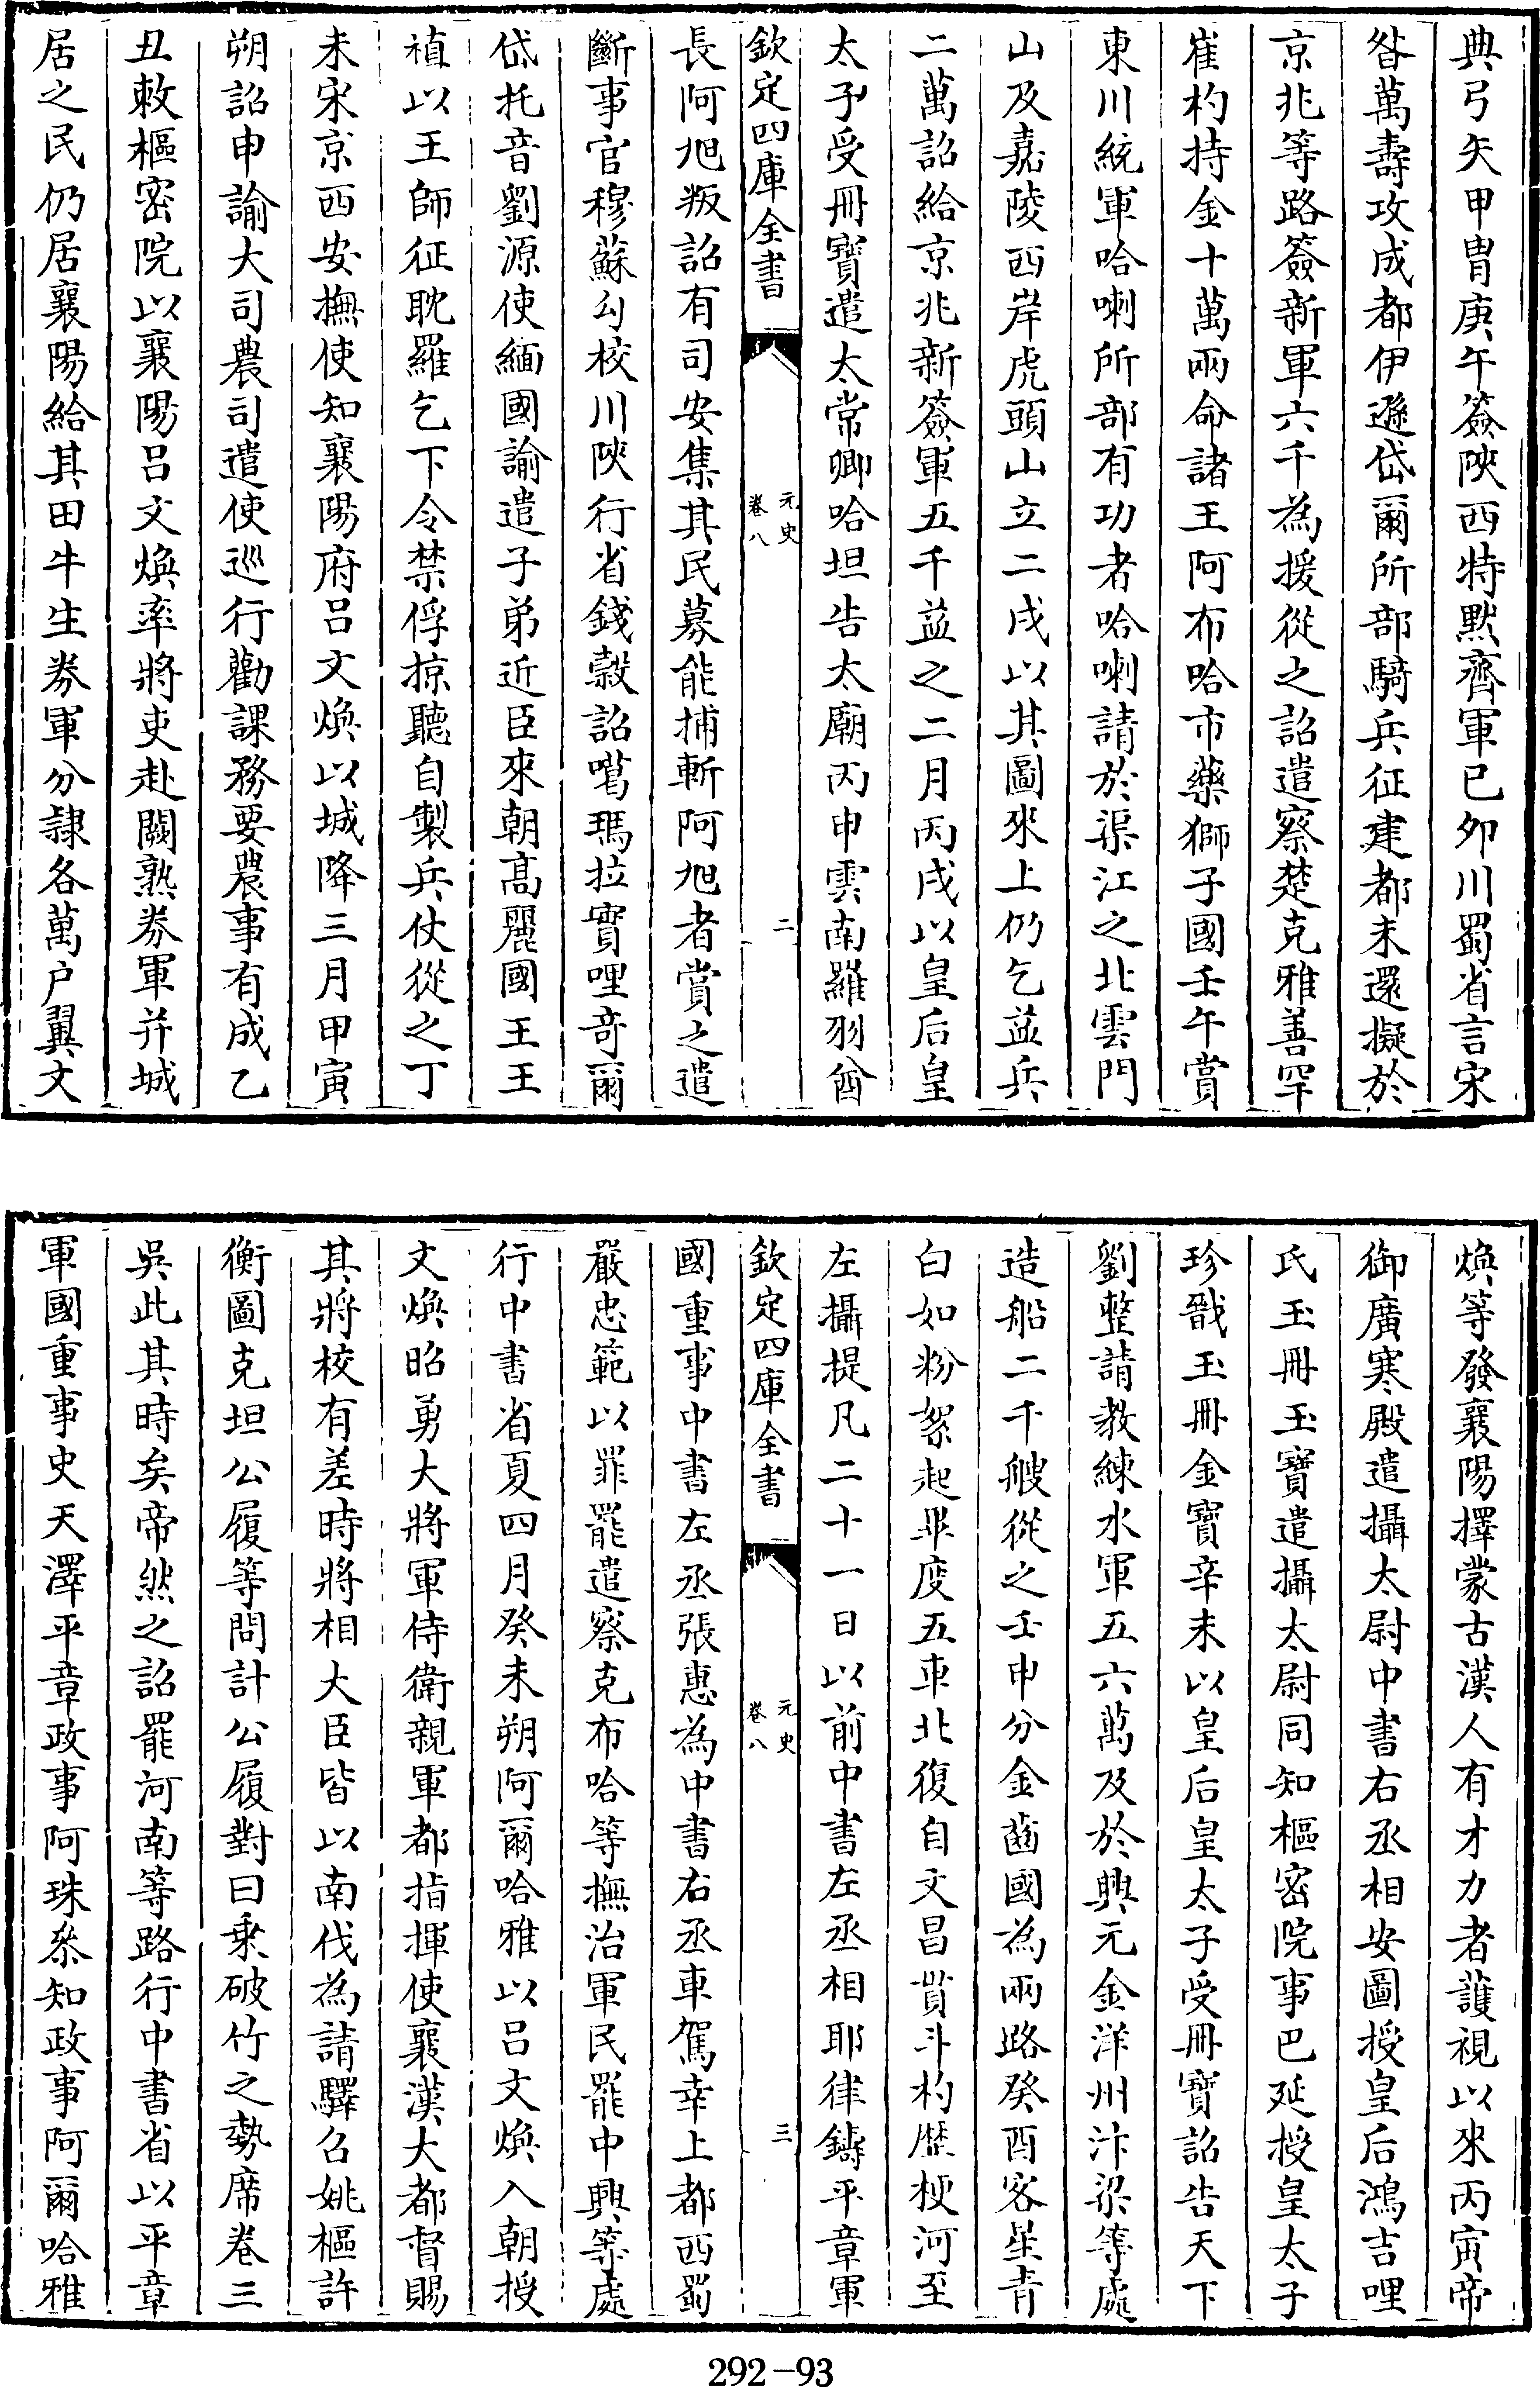 典弓矢甲胄庚午簽陜西特默齊軍已夘川蜀省言宋
昝萬壽攻成都伊遜岱爾所部騎兵征建都未還擬於
京兆等路簽新軍六千為援從之詔遣察楚克雅善罕
崔杓持金十萬兩命諸王阿布哈市藥獅子國壬午賞
東川統軍哈喇所部有功者哈喇請於渠江之北雲門
山及嘉陵西岸虎頭山立二戍以其圖來上仍乞益兵
二萬詔給京兆新簽軍五千益之二月丙戌以皇后皇
太子受冊寶遣太常卿哈坦告太廟丙申雲南羅羽酋
欽定四庫全書
元史
卷八
二
長阿旭叛詔有司安集其民募能捕斬阿旭者賞之遣
斷事官穆蘇勾校川陜行省錢穀詔噶瑪拉實哩竒爾
岱托音劉源使緬國諭遣子弟近臣來朝高麗國王王
禃以王師征耽羅乞下令禁俘掠聽自製兵仗從之丁
未宋京西安撫使知襄陽府吕文煥以城降三月甲寅
朔詔申諭大司農司遣使巡行勸課務要農事有成乙
丑敕樞密院以襄陽吕文煥率將吏赴闕熟劵軍并城
居之民仍居襄陽給其田牛生劵軍分隸各萬户翼文
煥等發襄陽擇蒙古漢人有才力者護視以來丙寅帝
御廣寒殿遣攝太尉中書右丞相安圖授皇后鴻吉哩
氏玉冊玉寶遣攝太尉同知樞密院事巴延授皇太子
珍戩玉冊金寶辛未以皇后皇太子受冊寶詔告天下
劉整請教練水軍五六萬及於興元金洋州汴梁等處
造船二千艘從之壬申分金齒國為兩路癸酉客星青
白如粉絮起畢度五車北復自文昌貫斗杓歴梗河至
左攝提凡二十一日以前中書左丞相耶律鑄平章軍
欽定四庫全書
元史
卷八
三
國重事中書左丞張惠為中書右丞車駕幸上都西蜀
嚴忠範以罪罷遣察克布哈等撫治軍民罷中興等處
行中書省夏四月癸未朔阿爾哈雅以吕文煥入朝授
文煥昭勇大將軍侍衛親軍都指揮使襄漢大都督賜
其將校有差時將相大臣皆以南伐為請驛召姚樞許
衡圖克坦公履等問計公履對曰乗破竹之勢席卷三
吳此其時矣帝然之詔罷河南等路行中書省以平章
軍國重事史天澤平章政事阿珠叅知政事阿爾哈雅
292-93